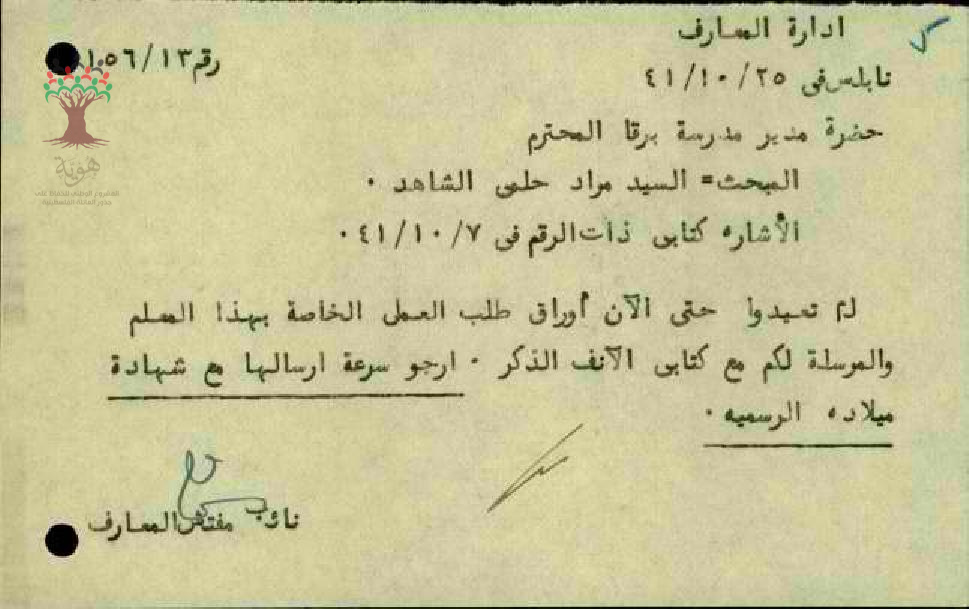 ادارة المعارف
رقم ١٥٦/١٣
نابلس فى ٤١/١٠/٢٥
حضرة مدير مدرسة برقا المحترم
المبحث= السيد مراد حلمى الشاهد ٠
الأشاره كتابى ذات الرقم فى ٤١/١٠/٧ ٠
لم تعيدوا حتى الآن أوراق طلب العمل الخاصة بهذا المعلم
والمرسلة لكم مع كتابى الآنف الذكر ٠ ارجو سرعة ارسالها مع شهادة
ميلاده الرسميه ٠
نائب مفتش المعارف
هوية
المشروع الوطني للحفاظ على
جذور العائلة الفلسطينية